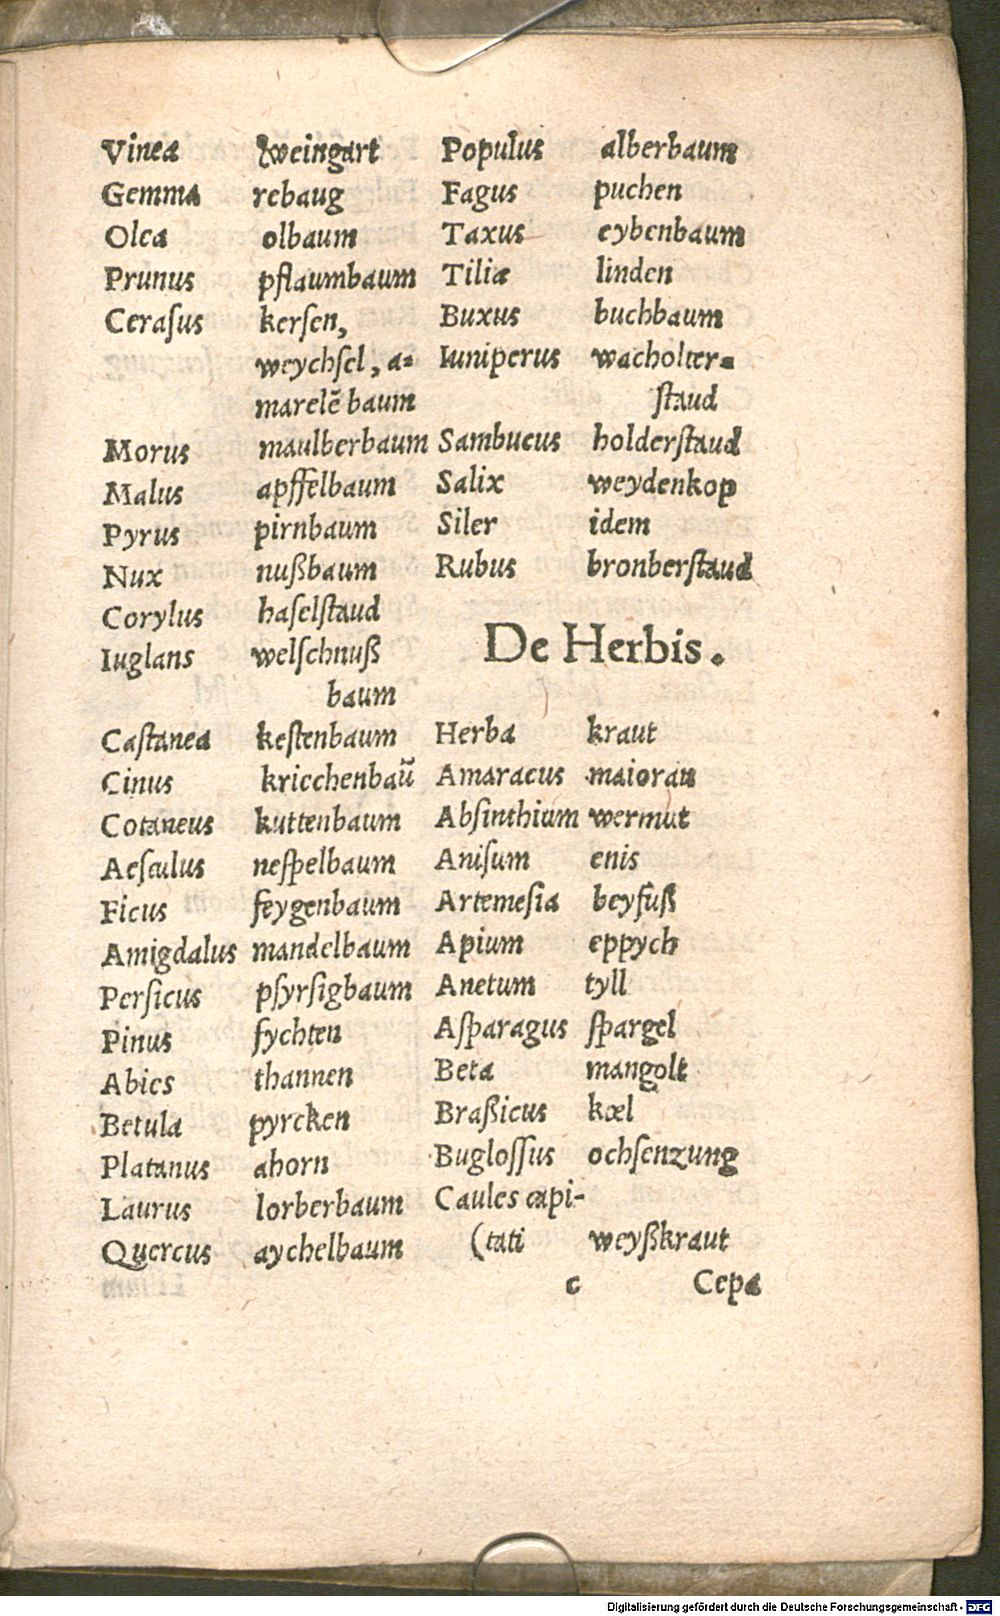 Vinea weingart
Gemma rebaug
Olea olbaum
Prunus pflaumbaum
Ceraſus kerſen,
weychſel, a=
marelē baum
Morus maulberbaum
Malus apffelbaum
Pyrus pirnbaum
Nux nußbaum
Corylus haſelſtaud
Iuglans welſchnuß
baum
Caſtanea keſtenbaum
Cinus kriechenbaū
Cotaneus kuttenbaum
Aeſculus neſpelbaum
Ficus feygenbaum
Amigdalus mandelbaum
Perſicus pſyrſigbaum
Pinus fychten
Abies thannen
Betula pyrcken
Platanus ahorn
Laurus lorberbaum
Quercus aychelbaum
Populus alberbaum
Fagus puchen
Taxus eybenbaum
Tilia linden
Buxus buchbaum
Iuniperus wacholter=
ſtaud
Sambucus holderſtaud
Salix weydenkop
Siler idem
Rubus bronberſtaud
De Herbis.
Herba kraut
Amaracus maioran
Abſinthium wermut
Aniſum enis
Artemeſia beyfuß
Apium eppych
Anetum tyll
Aſparagus ſpargel
Beta mangolt
Braßicus kœl
Bugloſſus ochſenzung
Caules capi-
(tati weyßkraut
c Cepa
Digitalisierung gefördert durch die Deutsche Forschungsgemeinschaft - DFG